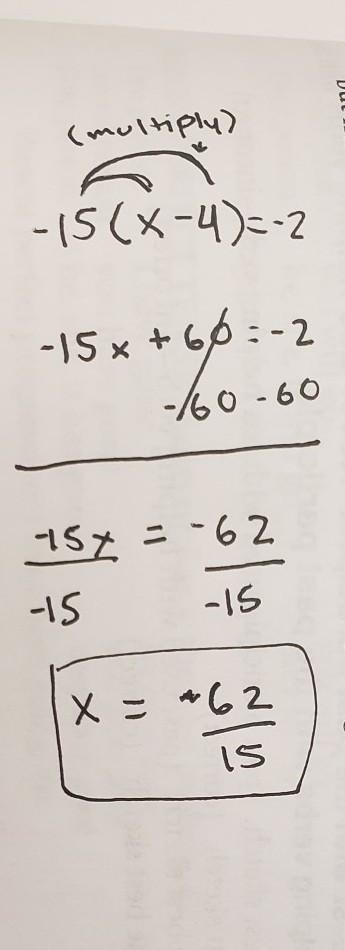 (multiply)
-15(x-4)=-2
-15x + 60 = -2
-60 -60
-15x = -62
-15 -15
x = 62
15